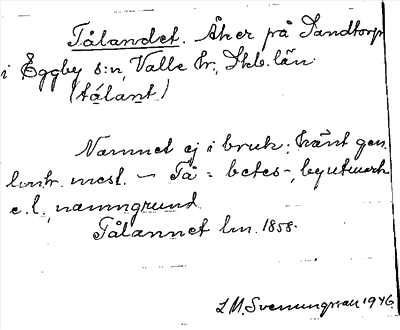 Tålandet. Åker på Sandtorp
i Eggby s:n, Valle hr., Skb. län.
(tålant)
Namnet ej i bruk; känt gen.
lantm. mest. – Tå = betes-, byutmark
e.l., namngrund
Tålannet lm. 1858.
L M. Svenungsson 1946.